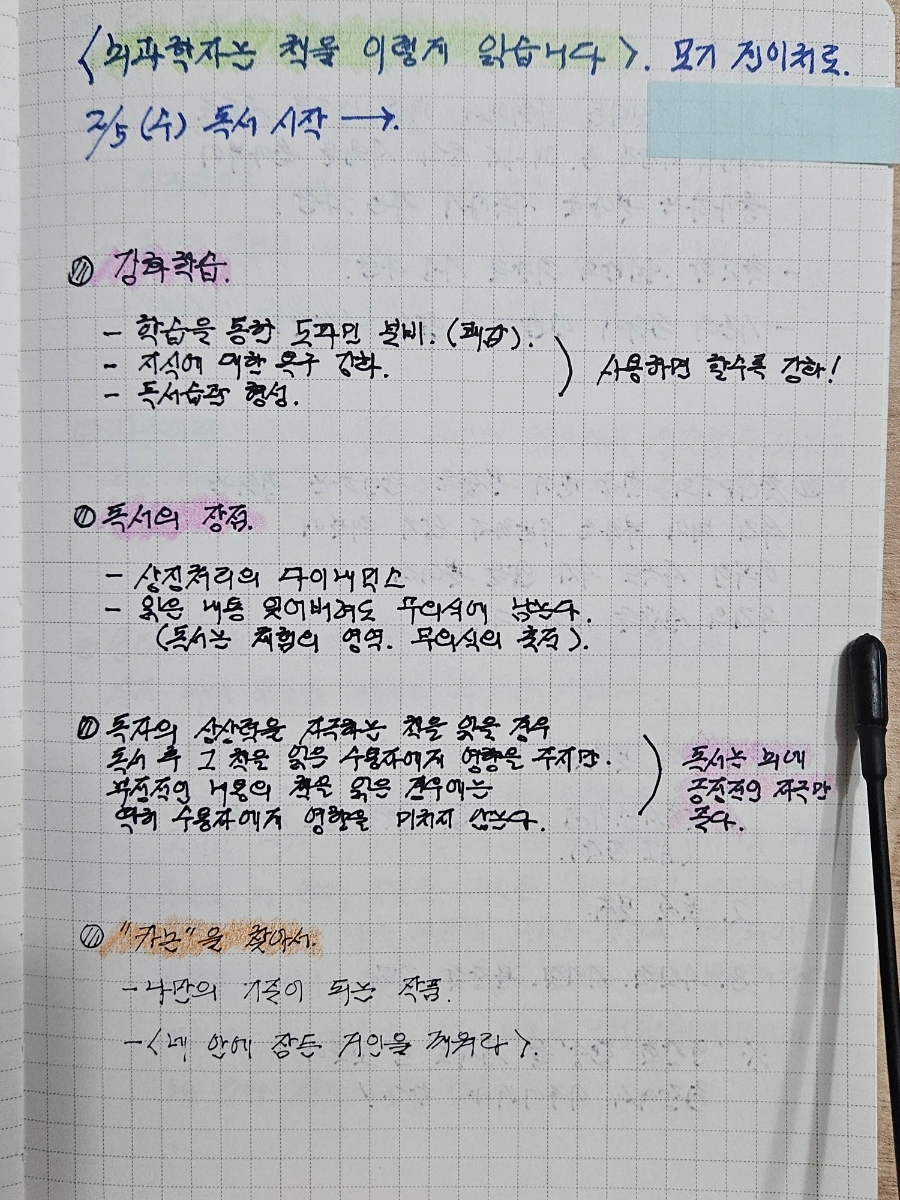 <뇌과학자는 책을 이렇게 읽습니다>. 모기 겐이치로.
2/5 (수) 독서 시작 →.
강화학습.
- 학습을 통한 도파민 분비. (쾌감).
- 지식에 대한 욕구 강화.
- 독서습관 형성.
사용하면 할수록 강화!
독서의 장점.
- 상징처리의 다이내믹스
- 읽은 내용 잊어버려도 무의식에 남는다.
(독서는 체험의 영역. 무의식의 축적).
독자의 상상력을 자극하는 책을 읽을 경우
독서 후 그 책을 읽은 수용자에게 영향을 주지만.
부정적인 내용의 책을 읽은 경우에는
딱히 수용자에게 영향을 미치지 않는다.
독서는 뇌에
긍정적인 자극만
준다.
"카논"을 찾아서.
- 나만의 기준이 되는 작품.
- <네 안에 잠든 거인을 깨워라>.